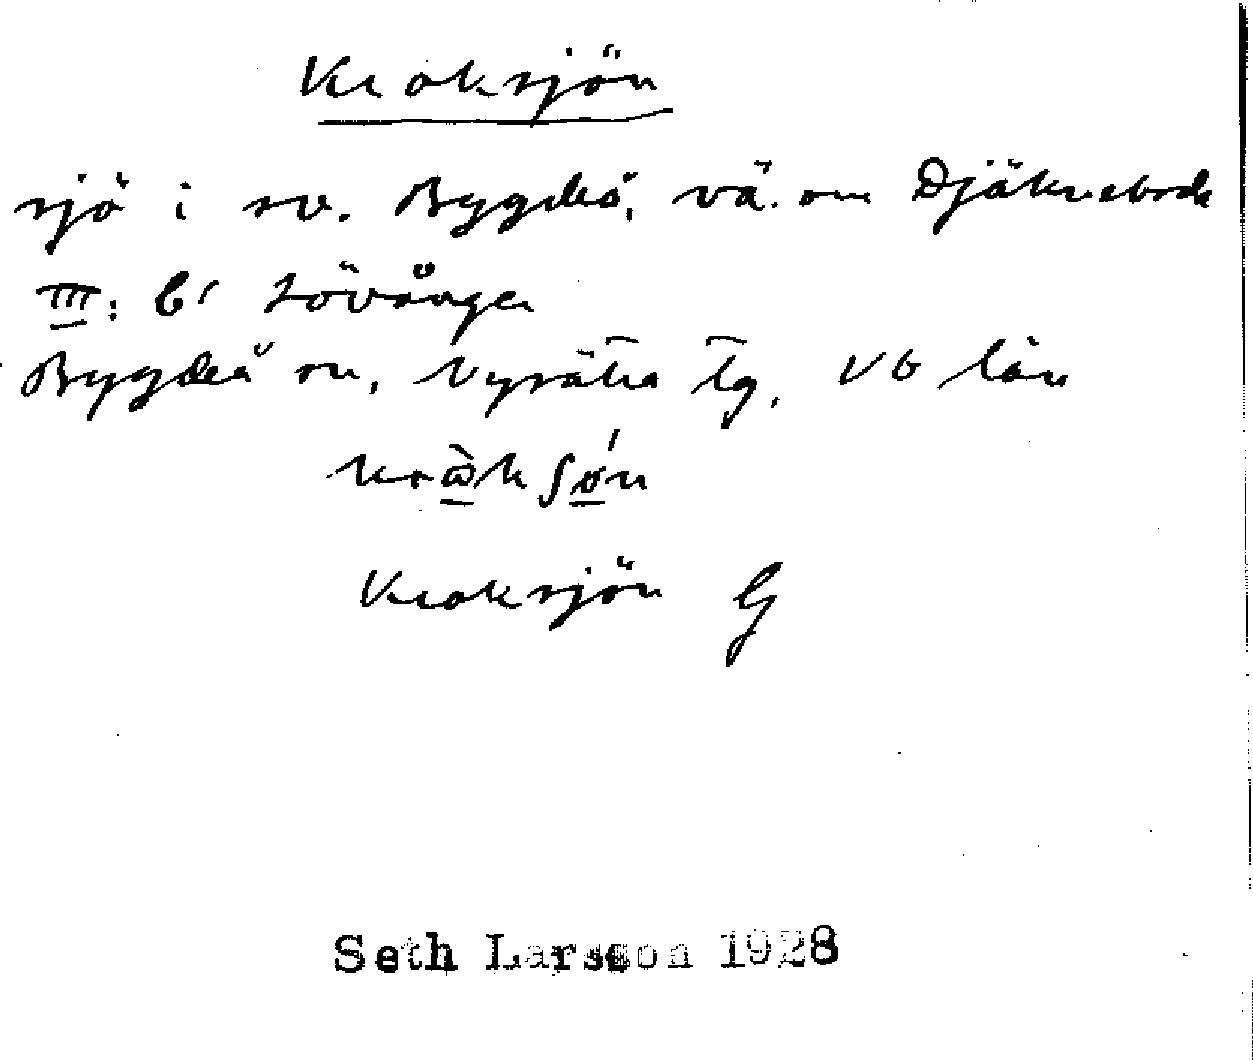 Kroksjön
sjö i sv. Bygdeå, vä. om Djäknebode
III: b1 Lövånger
Bygdeå sn, Nysätra tg, Vb län
Kroksjön G
Seth Larsson 1928